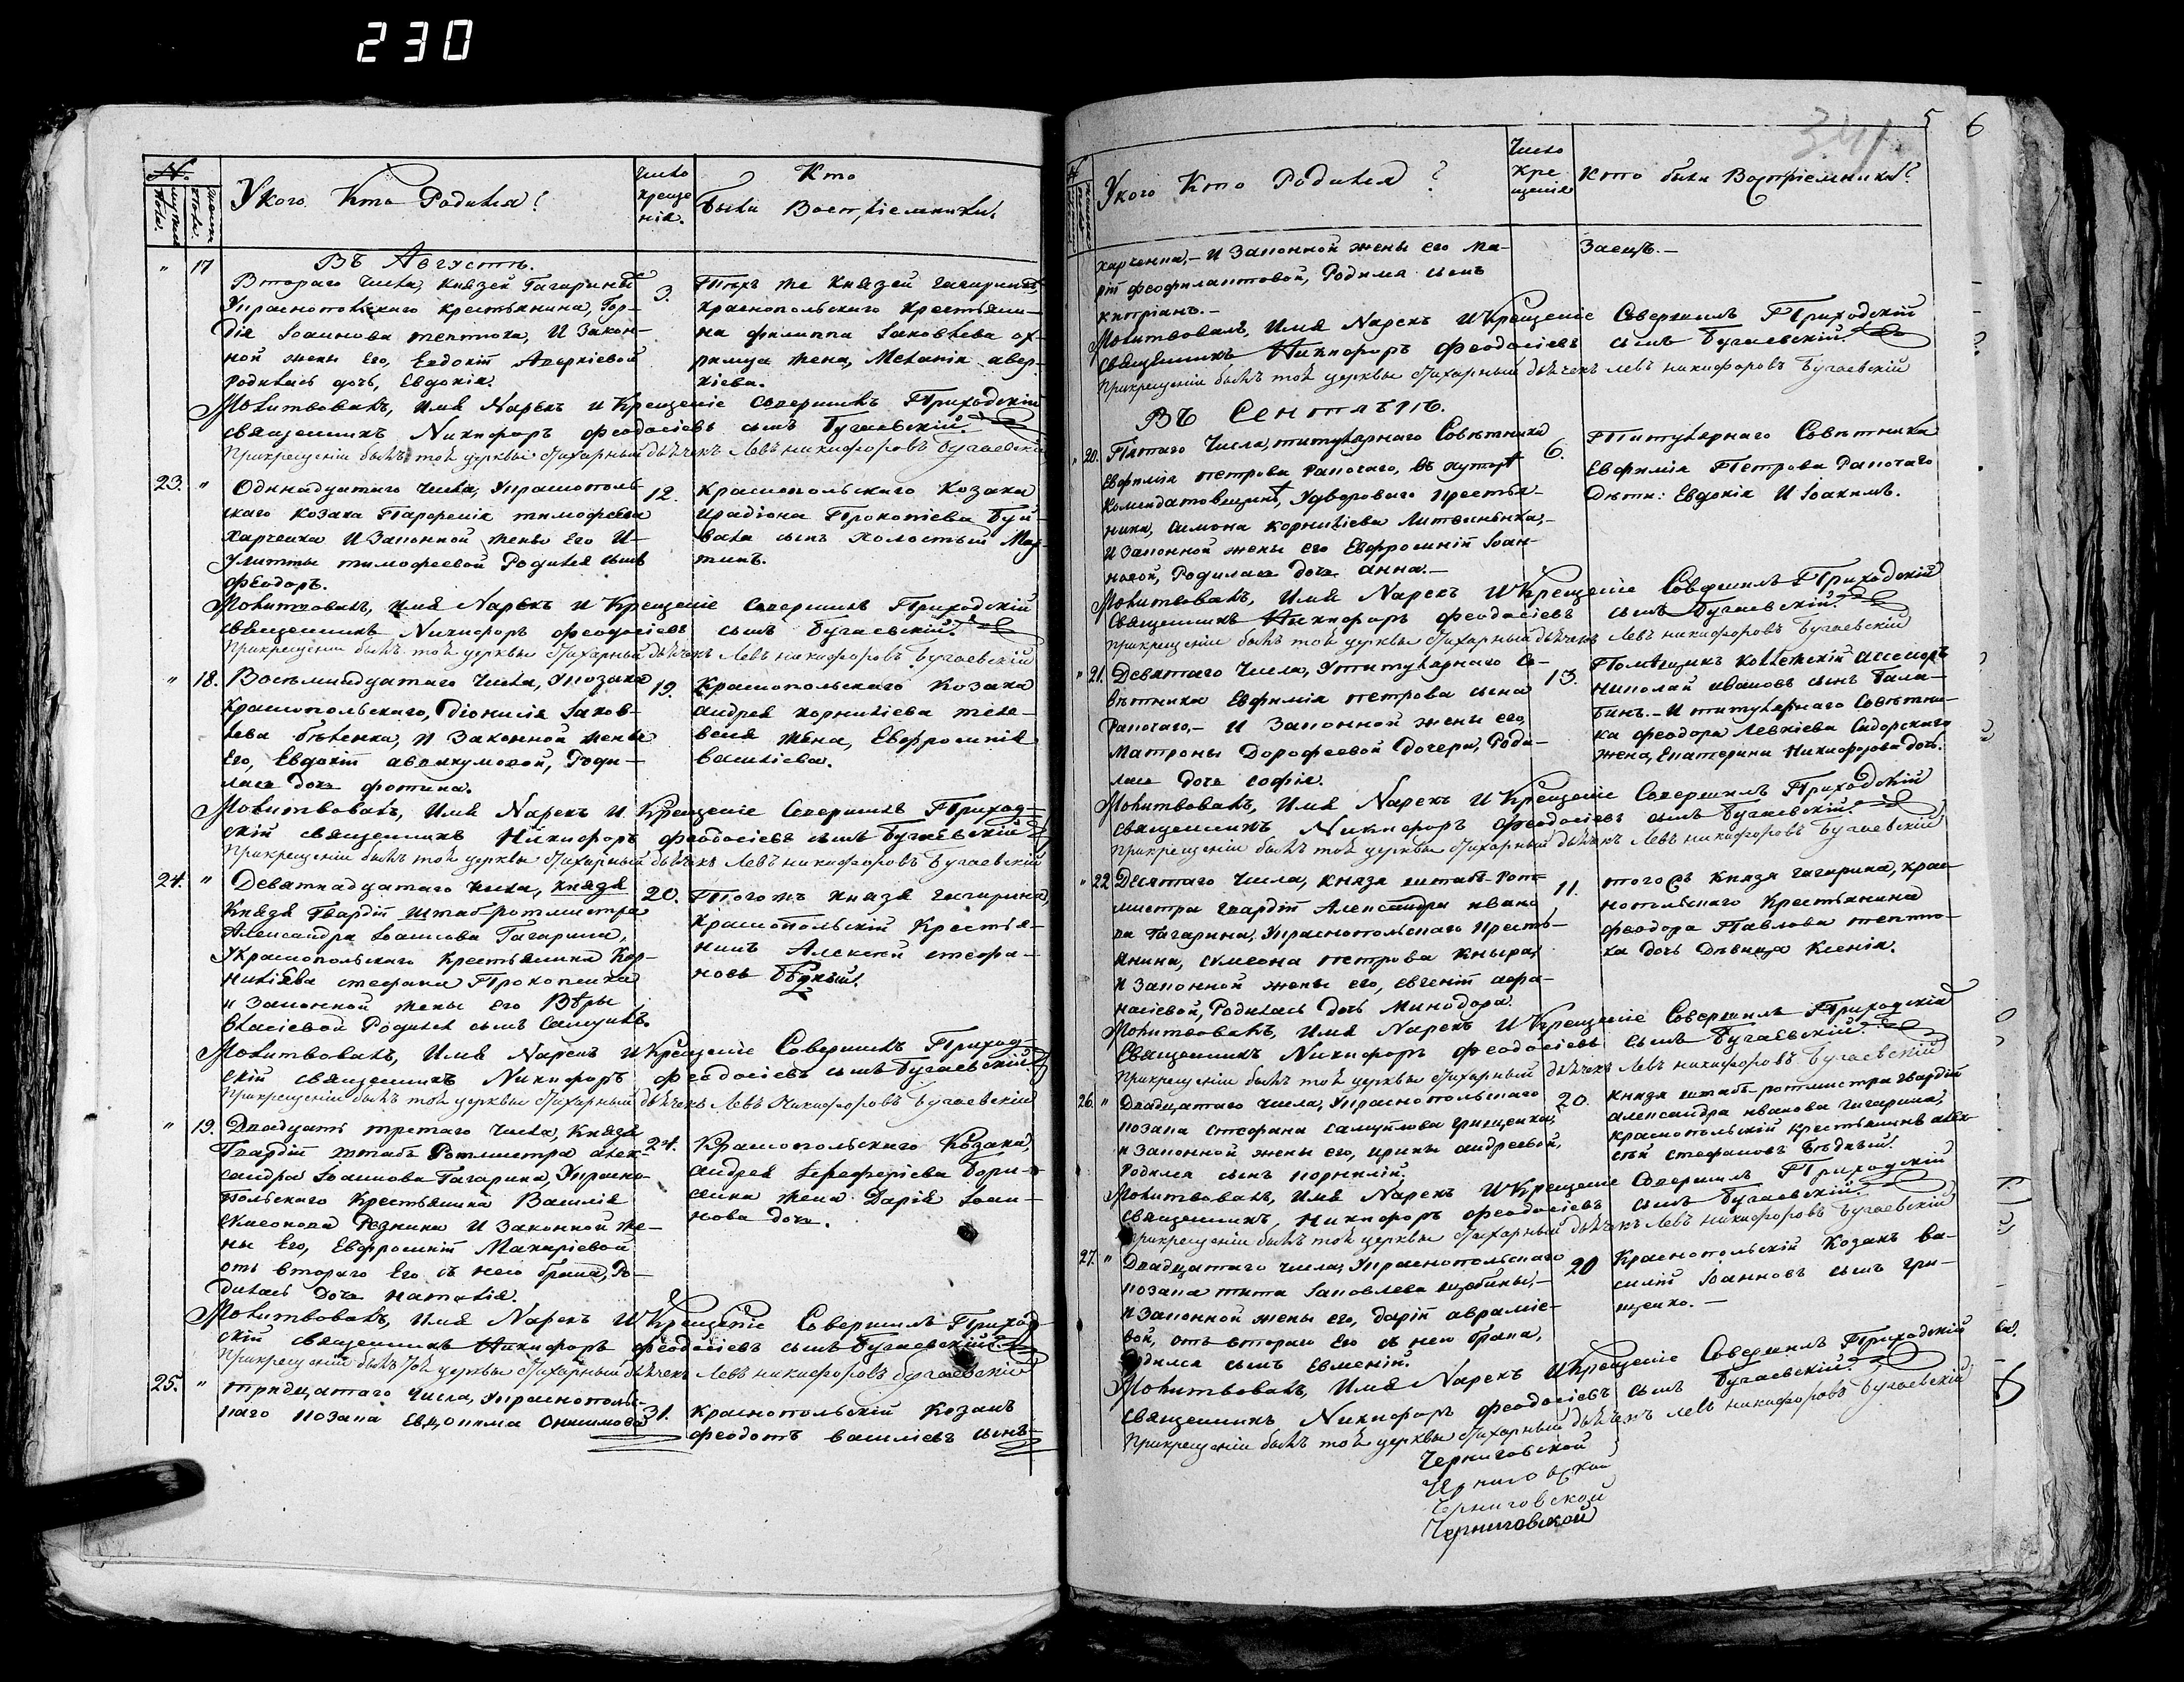 230
№.
мужеска пола.
женска пола.
У кого Кто Родился?
Число креще-
нія.
Кто
были Воспріемники.
Въ Августѣ.
" 17
Втораго числа, Князей Гагариныхъ
Украснопольскаго крестьянина, Гор-
дія Іоаннова тептюха, И Закон-
ной жены Его, Евдокіи Аверкіевой
родилась дочь, Евдокія.
3.
Тѣхъ же Князей Гагариныхъ
краснопольскаго крестьяни-
на филиппа Іаковлева ох-
римца жена, Меланія авер-
кіева.
Молитвовалъ, Имя Нарекъ и Крещеніе совершилъ Приходскій
священникъ Никифоръ феодосіевъ сынъ Бугаевскій.
При крещеніи былъ той церкви стихарный дьячекъ Левъ никифоровъ Бугаевскій
23. "
Одинадцатаго числа, Украснополь-
скаго козака Парфенія тимофеева
Харченка И Законной жены Его И-
улитты тимофеевой Родился сынъ
феодоръ.
12.
Краснопольскаго Козака
Иродіона Прокопіева Буй-
вала сынъ холостый Мар-
тинъ.
Молитвовалъ, имя Нарекъ и Крещеніе совершилъ Приходскій
священникъ Никифоръ феодосіевъ сынъ Бугаевскій.
При крещеніи былъ той церкви стихарный дьячекъ Левъ никифоровъ Бугаевскій
" 18.
Восьмнадцатаго числа, Укозака
Краснопольскаго, Діонисія Іаков-
лева бѣленка, И Законной жены
Его, Евдокіи аввакумовой, Роди-
лась дочь фотина.
19.
Краснопольскаго Козака
андрея корнилієва теле-
веня жена, Евфросинія
василіева.
Молитвовалъ, Имя Нарекъ И Крещеніе Совершилъ Приход-
скій священникъ Никифоръ феодосіевъ сынъ Бугаевскій
При крещеніи былъ той церкви стихарный дьячекъ Левъ никифоровъ Бугаевскій
24. "
Девятнадцатаго числа, князя
Князя Гвардіи штаб-ротмистра
Александра Іоаннова Гагарина,
Украснопольскаго Крестьянина Кор-
ниліева стефана Прокопенка
и Законной жены Его Вѣры
Власіевой Родился сынъ Самуилъ.
20.
Тогожъ князя гагарина,
краснопольскій Крестья-
нинъ Алексѣй стефа-
новъ Бѣдный.
Молитвовалъ, Имя Нарекъ и Крещеніе Совершилъ Приход-
скій священникъ Никифоръ феодосіевъ сынъ Бугаевскій
При крещеніи былъ той церкви стихарный дьячекъ Левъ Никифоровъ Бугаевскій
" 19.
Двадцать третаго числа, Князя
Гвардіи штабъ Ротмистра алек-
сандра Іоаннова Гагарина, Украсно-
польскаго Крестьянина Василія
Резника И Законной же-
ны Его, Евфросиніи Макаріевой
отъ втораго Его съ нею брака, Ро-
дилась дочь Наталія.
24.
Краснопольскаго Козака,
андрея Бори-
сенка жена Дарія Іоан-
нова дочь.
Молитвовалъ, Имя Нарекъ и Крещеніе Совершилъ Приход-
скій священникъ Никифоръ феодосіевъ сынъ Бугаевскій
При крещеніи былъ той церкви стихарный дьячекъ Левъ никифоровъ бугаевскій
25. "
тридцатаго числа, Украснополь-
скаго козака Евдокима Онисимова
31.
краснопольскій Козакъ
феодотъ василіевъ сынъ
341
5
6
У кого Кто Родился?
Число
Кре
щенія
Кто были Воспріемники?
харченка,- И Законной жены его ма-
ріи феофилактовой, Родился сынъ
кипріанъ.-
Заецъ.-
Молитвовалъ, Имя Нарекъ И Крещеніе Совершилъ Приходскій
священникъ Никифоръ феодосіевъ сынъ Бугаевскій.
При крещеніи былъ той церкви стихарный дьячекъ левъ никифоровъ Бугаевскій
Въ Сентябрѣ.
" 20.
Пятаго числа, титулярнаго Совѣтника
Евфимія петрова рапочаго, въ хуторѣ
Комендатовщинѣ, Удвороваго крестья-
нина, симона корниліева Литвиненка,-
И Законной жены его Евфросиніи Іоан-
новой, Родилась дочь Анна.-
6.
Титулярнаго Совѣтника
Евфимія Петрова Рапочаго
Дѣти: Евдокія И Іоакимъ.
Молитвовалъ, Имя Нарекъ И Крещеніе Совершилъ Приходскій
Священникъ Никифоръ феодосіевъ сынъ Бугаевскій.
При крещеніи былъ той церкви стихарный дьячекъ Левъ никифоровъ Бугаевскій
" 21.
Девятаго числа, Утитулярнаго Со-
вѣтника Евфимія петрова сына
Рапочаго,- И Законной жены его,
матроны Дорофеевой дочери, Роди-
лась дочь софія.
13.
Помѣщикъ Коллежскій ассесоръ
николай ивановъ сынъ Бала-
бинъ.- И титулярнаго Совѣтни-
ка феодора Левкіева Сидорскаго
жена, Екатерина Никифорова дочь.
Молитвовалъ, Имя Нарекъ И Крещеніе Совершилъ Приходскій
священникъ Никифоръ феодосіевъ сынъ Бугаевскій.
При крещеніи былъ той церкви стихарный дьячекъ Левъ никифоровъ Бугаевскій
" 22
Десятаго числа, князя штабъ-рот-
мистра гвардіи Александра ивано
ва Гагарина, Украснопольскаго кресть-
янина, симеона петрова Кныра,
и Законной жены его, евгеніи афа-
насіевой, Родилась дочь минодора.
11.
тогожъ князя гагарина, крас-
нопольскаго Крестьянина
феодора Павлова тептю-
ха дочь Дѣвица Ксенія.
Молитвовалъ, Имя Нарекъ И Крещеніе Совершилъ Приходскій
Священникъ Никифоръ феодосіевъ сынъ Бугаевскій.
При крещеніи былъ той церкви стихарный дьячекъ Левъ никифоровъ Бугаевскій
26. "
Двадцатаго числа, Украснопольскаго
козака стефана самуйлова грищенка,
и Законной жены его, ирины андреевой,
родился сынъ корнилій.
20.
Князя штабъ-ротмистра гвардіи
александра иванова гагарина,
краснопольскій крестьянинъ алек-
сѣй стефановъ Бѣдный.
Молитвовалъ, Имя Нарекъ И Крещеніе Совершилъ Приходскій
священникъ, Никифоръ феодосіевъ сынъ Бугаевскій.
При крещеніи былъ той церкви стихарный дьячекъ Левъ никифоровъ Бугаевскій
27. "
Двадцатаго числа, Украснопольскаго
козака тита Іаковлева щербины,-
и Законной жены его, даріи авраміе-
вой, отъ втораго Его съ нею брака,
родился сынъ евменій.
20
Краснопольскій Козакъ ва-
силій Іоанновъ сынъ гри-
щенко.-
Молитвовалъ, Имя Нарекъ И Крещеніе Совершилъ Приходскій
священникъ Никифоръ феодосіевъ сынъ Бугаевскій.
При крещеніи былъ той церкви стихарный дьячекъ левъ никифоровъ Бугаевскій
Черниговской
Черниговской
Черниговской
Черниговской